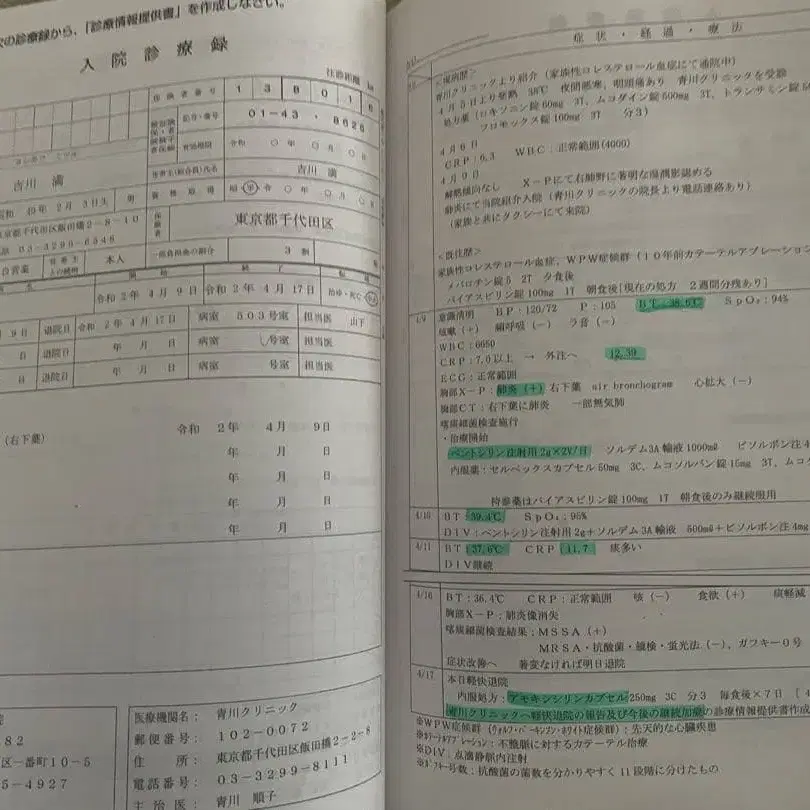 の診療録から、「診療情報提供書」を作成しなさい。
入院診療録
往診距離 km
保険者番号 1 3 8 0 1 6
記号・番号 01-43・8626
有効期限 令和 〇年 〇月 〇日
吉川 満
吉川 満
昭和 49年 2月 3日生 男
資格取得
東京都千代田区飯田橋2-8-10
03-3296-6546
保険者 東京都千代田区
自営業
本人
一部負担金の割合 3割
令和2年 4月 9日 令和2年 4月17日
9日 退院日 令和 2年 4月 17日 病室 503号室 担当医 山下
日 退院日 年 月 日 病室 号室 担当医
日 退院日 年 月 日 病室 号室 担当医
(右下葉) 令和 2年 4月 9日
年 月 日
年 月 日
年 月 日
年 月 日
82
区一番町10-5
5-4927
医療機関名: 青川クリニック
郵便番号: 102-0072
住 所: 東京都千代田区飯田橋2-2-8
電話番号: 03-3299-8111
主治医: 青川 順子
症状・経過・療法
<現病歴>
青川クリニックより紹介(家族性コレステロール血症にて通院中)
4月5日より発熱 38℃ 夜間悪寒、咽頭痛あり 青川クリニックを受診
処方薬(ロキソニン錠60mg 3T、ムコダイン錠500mg 3T、トランサミン錠
フロモックス錠100mg 3T 分3)
4月6日
CRP:6.3 WBC:正常範囲(4000)
4月9日
解熱傾向なし X-Pにて右肺野に著明な湿潤影認める
肺炎にて当院紹介入院(青川クリニックの院長より電話連絡あり)
(家族と共にタクシーにて来院)
<既往歴>
家族性コレステロール血症、WPW症候群(10年前カテーテルアブレーション
メバロチン錠5 2T 夕食後
バイアスピリン錠100mg 1T 朝食後[現在の処方 2週間分残あり]
4/9 意識清明 BP:120/72 P:105 BT:38.5℃ SpO₂:94%
咳嗽(+) 喘呼吸(-) ラ音(-)
WBC:6650
CRP:7.0以上 → 外注へ 12.39
ECG:正常範囲
胸部X-P:肺炎(+)右下葉 air bronchogram 心拡大(-)
胸部CT:右下葉に肺炎 一部無気肺
喀痰細菌検査施行
・治療開始
ペントシリン注射用2g×2V/日 ソルデム3A輸液1000mℓ ビソルボン注4
内服薬:セルベックスカプセル50mg 3C、ムコソルバン錠15mg 3T、ムコ
持参薬はバイアスピリン錠100mg 1T 朝食後のみ継続服用
4/10 BT:39.4℃ SpO₂:95%
DIV:ペントシリン注射用2g+ソルデム3A輸液 500mℓ+ビソルボン注4mg
4/11 BT:37.6℃ CRP:11.7 痰多い
DIV継続
4/16 BT:36.4℃ CRP:正常範囲 咳(-) 食欲(+) 痰軽減
胸部X-P:肺炎像消失
喀痰細菌検査結果:MSSA(+)
MRSA・抗酸菌・鏡検・蛍光法(-)、ガフキー0号
症状改善へ 著変なければ明日退院
4/17 本日軽快退院
内服処方:アモキシシリンカプセル250mg 3C 分3 毎食後×7日 [4
青川クリニックへ軽快退院の報告及び今後の継続加療の診療情報提供書作成
※WPW症候群(ウォルフ・パーキンソン・ホワイト症候群):先天的な心臓疾患
※カテーテルアブレーション:不整脈に対するカテーテル治療
※DIV:点滴静脈内注射
※ガフキー号数:抗酸菌の菌数を分かりやすく11段階に分けたもの